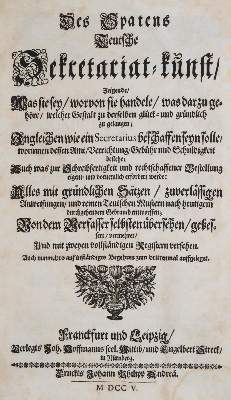 Des Spatens
Teutsche
Sekretariat-kunst/
Zeigende/
Was sie sey/ worvon sie handele/ was darzu ge-
höre/ welcher Gestalt zu derselben glück- und gründlich
zu gelangen;
Ingleichen wie ein Secretarius beschaffen seyn solle/
worinnen dessen Amt/ Verrichtung/ Gebühr und Schuldigkeit
bestehe;
Auch was zur Schreibfertigkeit und rechtschaffener Bestellung
eigen- und vornemlich erfordert werde:
Alles mit gründlichen Sätzen/ zuverlässigen
Anweisungen/ und reinen Teutschen Mustern nach heutigem
durchgehenden Gebrauch entworffen;
Von dem Verfasser selbsten übersehen/ gebes-
sert/ vermehret/
Und mit zweyen vollständigen Registern versehen.
Auch nunmehro auf inständiges Begehren zum drittenmal aufgeleget.
Franckfurt und Leipzig/
Verlegts Joh. Hoffmanns seel. Wittib/ und Engelbert Streck/
in Nürnberg.
Druckts Johann Philipp Andreä.
M DCC V.